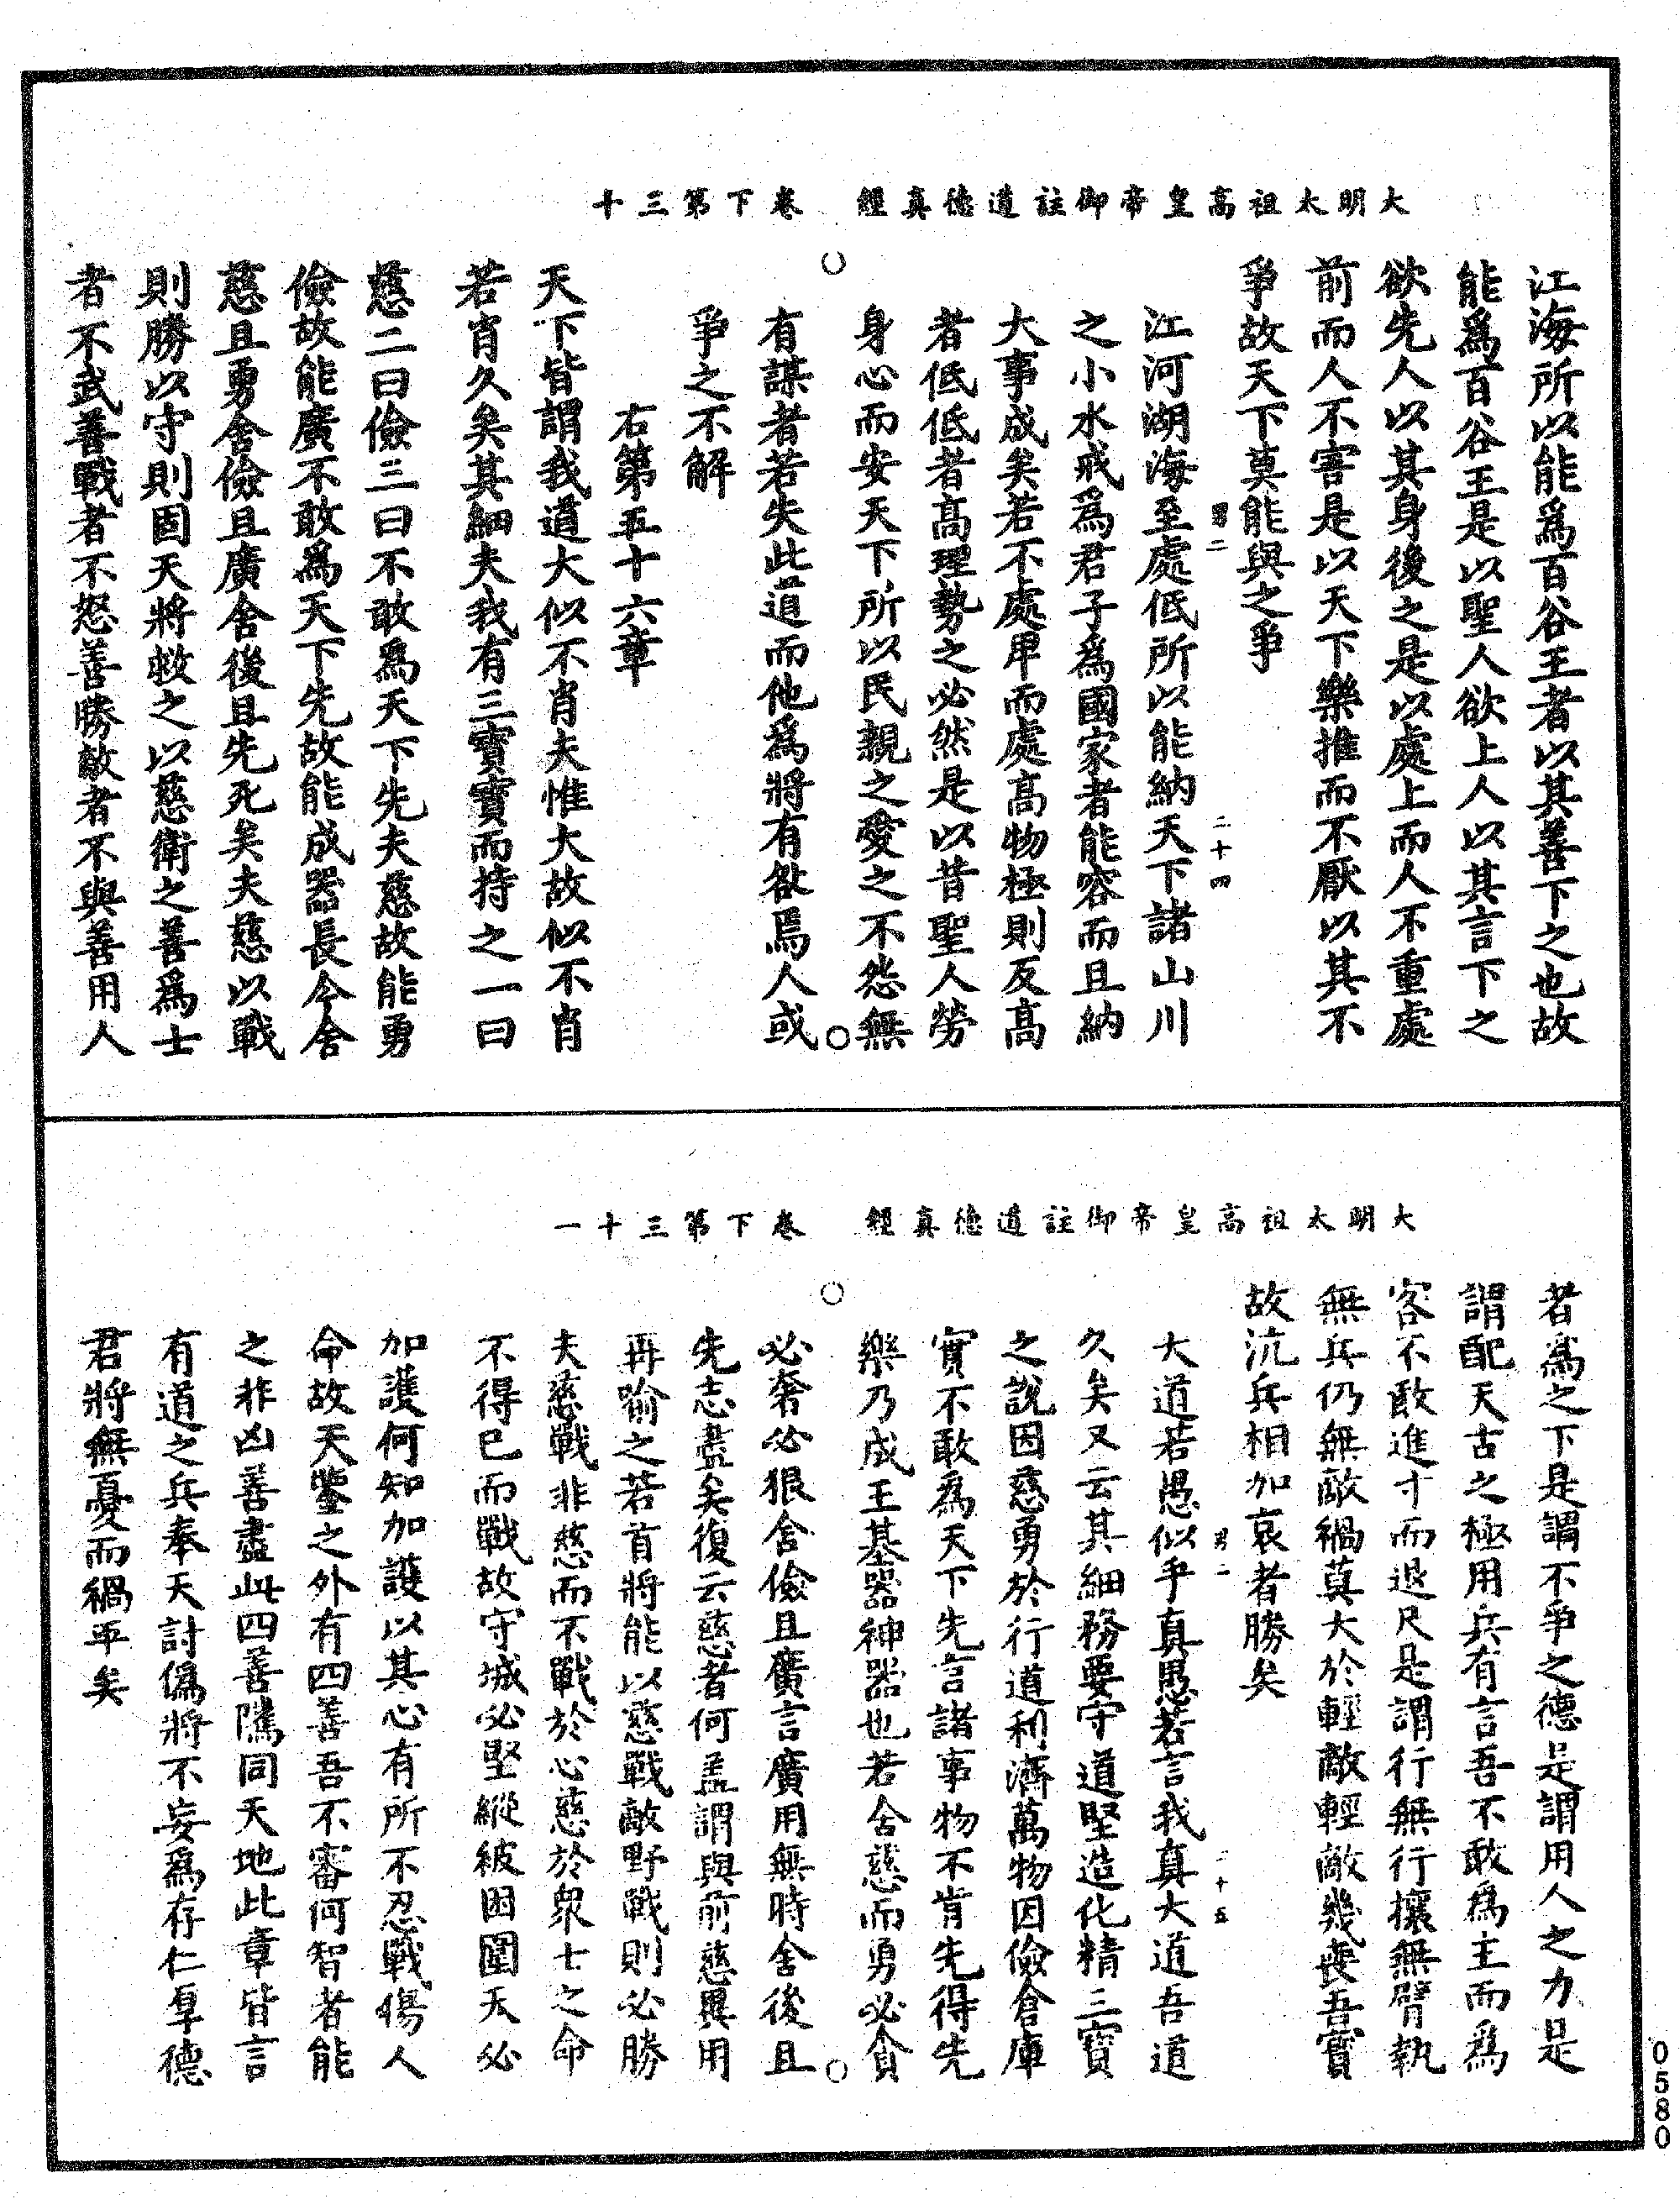 大明太祖高皇帝御註道德真經　卷下第三十
江海所以能爲百谷王者以其善下之也故
能爲百谷王是以聖人欲上人以其言下之
欲先人以其身後之是以處上而人不重處
前而人不害是以天下樂推而不厭以其不
爭故天下莫能與之爭
江河湖海至處低所以能納天下諸山川
之小水戒爲君子爲國家者能容而且納
大事成矣若不處卑而處高物極則反高
者低低者高理勢之必然是以昔聖人勞
身心而安天下所以民親之愛之不怨無
有謀者若失此道而他爲將有咎焉人或
爭之不解
右第五十六章
天下皆謂我道大似不肖夫惟大故似不肖
若肖久矣其細夫我有三寶寶而持之一曰
慈二曰儉三曰不敢爲天下先夫慈故能勇
儉故能廣不敢爲天下先故能成器長今舍
慈且勇舍儉且廣舍後且先死矣夫慈以戰
則勝以守則固天將救之以慈衛之善爲士
者不武善戰者不怒善勝敵者不與善用人
二十四
大明太祖高皇帝御註道德真經　卷下第三十一
者爲之下是謂不爭之德是謂用人之力是
謂配天古之極用兵有言吾不敢爲主而爲
客不敢進寸而退尺是謂行無行攘無臂執
無兵仍無敵禍莫大於輕敵輕敵幾喪吾寶
故沆兵相加哀者勝矣
大道若愚似乎真愚若言我真大道吾道
久矣又云其細務要守道堅造化精三寶
之說因慈勇於行道利濟萬物因儉倉庫
實不敢爲天下先言諸事物不肯先得先
樂乃成王基器神器也若舍慈而勇必貪
必奢必狠舍儉且廣言廣用無時舍後且
先志盡矣復云慈者何盖謂與前慈異用
再喻之若首將能以慈戰敵野戰則必勝
夫慈戰非慈而不戰於心慈於衆士之命
不得已而戰故守城必堅縱被困圍天必
加護何知加護以其心有所不忍戰傷人
命故天鑒之外有四善吾不審何智者能
之非凶善盡此四善隲同天地此章皆言
有道之兵奉天討僞將不妄爲存仁厚德
君將無憂而禍平矣
二十五
0580